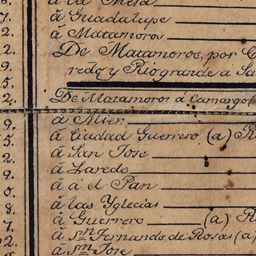 à Guadalupe
à Matamoros
De Matamoros, por C
redo y Rio grande a Sa
De Matamoros á Camargo (
à Mier
à Ciudad Guerrero (a) R
à San Jose
à Laredo
à a el Pan
à las Yglecias
à Guerrero (a) R
à Sn Fernando de Rosas (a)
à Sn Jose